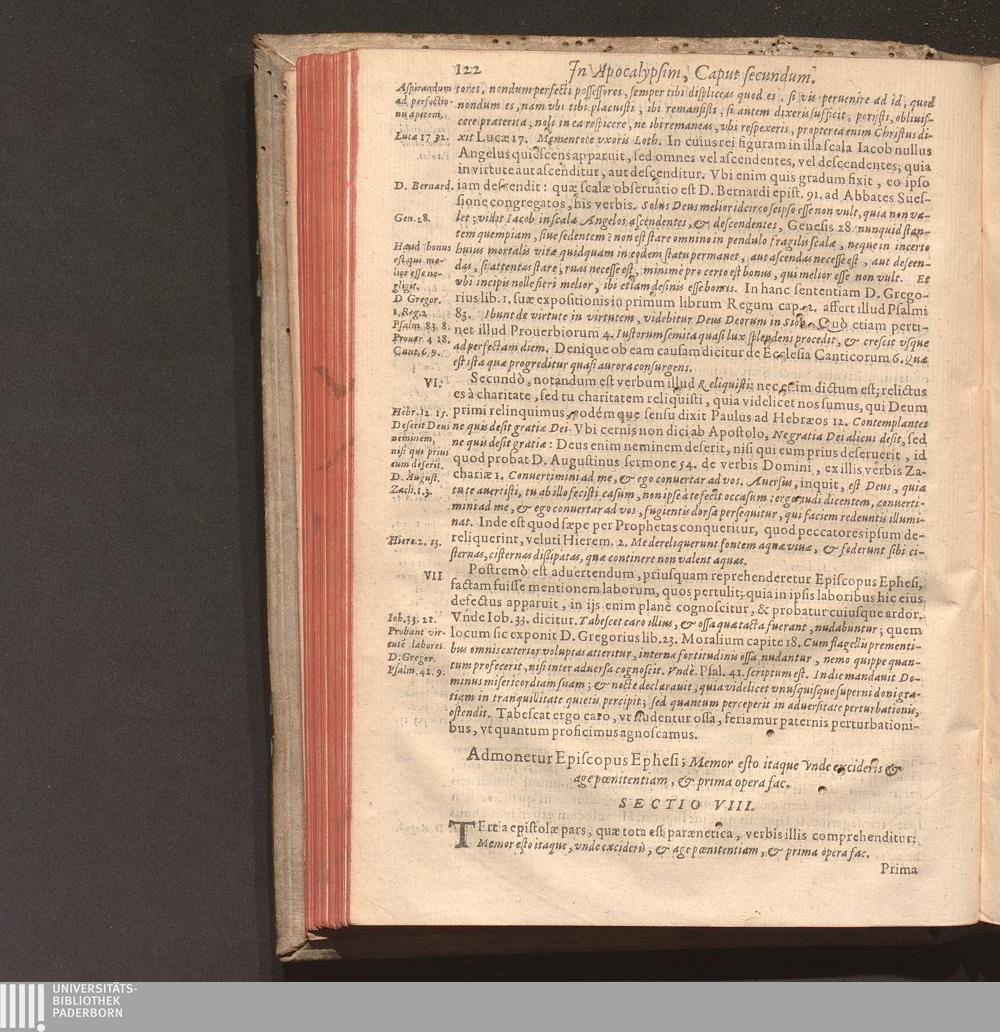 122 In Apocalypsim, Caput secundum.
Aspirandum
ad perfectio-
nis apicem.
tores, nondum perfecti possessores, semper tibi displiceas quod es, si vis peruenire ad id, quod
nondum es, nam vbi tibi placuisti, ibi remansisti, si autem dixeris sufficit, peristi, obliuis-
cere præterita, noli in ea respicere, ne ibi remaneas, vbi respexeris, propterea enim Christus di-
Lucæ 17 32.
xit Lucæ 17. Mementote vxoris Loth. In cuius rei figuram in illa scala Iacob nullus
Angelus quiescens apparuit, sed omnes vel ascendentes, vel descendentes; quia
in virtute aut ascenditur, aut descenditur. Vbi enim quis gradum fixit, eo ipso
D. Bernard.
iam descendit: quæ scalæ obseruatio est D. Bernardi epist. 91. ad Abbates Sues-
sione congregatos, his verbis. Solus Deus melior idcirco seipso esse non vult, quia non va-
Gen. 28.
let; vidit Iacob in scala Angelos ascendentes, & descendentes, Genesis 28. nunquid stan-
tem quempiam, siue sedentem? non est stare omnino in pendulo fragilis scalæ, neque in incerto
Haud bonus
est qui me-
lior esse ne-
gligit.
huius mortalis vitæ quidquam in eodem statu permanet, aut ascendas necesse est, aut descen-
das, si attentas stare, ruas necesse est, minime pro certo est bonus, qui melior esse non vult. Et
vbi incipis nolle fieri melior, ibi etiam desinis esse bonus. In hanc sententiam D. Grego-
D Gregor.
1. Reg. 2.
rius lib. 1. suæ expositionis in primum librum Regum cap. 2. affert illud Psalmi
Psalm. 83. 8.
83. Ibunt de virtute in virtutem, videbitur Deus Deorum in Sion. Quò etiam perti-
Prouer. 4 18.
net illud Prouerbiorum 4. Iustorum semita quasi lux splendens procedit, & crescit vsque
Cant. 6. 9.
ad perfectam diem. Denique ob eam causam dicitur de Ecclesia Canticorum 6. Quæ
est ista quæ progreditur quasi aurora consurgens.
VI.
Secundò, notandum est verbum illud Reliquisti: nec enim dictum est; relictus
es à charitate, sed tu charitatem reliquisti, quia videlicet nos sumus, qui Deum
Hebr. 12. 15.
primi relinquimus, eodémque sensu dixit Paulus ad Hebræos 12. Contemplantes
Deserit Deus
neminem,
nisi quo prius
eum deserit.
ne quis desit gratiæ Dei. Vbi cernis non dici ab Apostolo, Ne gratia Dei alicui desit, sed
ne quis desit gratiæ: Deus enim neminem deserit, nisi qui eum prius deseruerit, id
quod probat D. Augustinus sermone 54. de verbis Domini, ex illis verbis Za-
D. August.
Zach. 1. 3.
chariæ 1. Conuertimini ad me, & ego conuertar ad vos. Auersus, inquit, est Deus, quia
tu te auertisti, tu ab illo fecisti casum, non ipse à te fecit occasum: ergo audi dicentem, conuerti-
mini ad me, & ego conuertar ad vos, fugientis dorsa persequitur, qui faciem redeuntis illumi-
nat. Inde est quod sæpe per Prophetas conqueritur, quod peccatores ipsum de-
Hiere. 2. 13.
reliquerint, veluti Hierem. 2. Me dereliquerunt fontem aquæ viuæ, & foderunt sibi ci-
sternas, cisternas dissipatas, quæ continere non valent aquas.
VII
Postremò est aduertendum, priusquam reprehenderetur Episcopus Ephesi,
factam fuisse mentionem laborum, quos pertulit; quia in ipsis laboribus hic eius
defectus apparuit, in ijs enim planè cognoscitur, & probatur cuiusque ardor.
Iob. 33. 21.
Vnde Iob. 33. dicitur. Tabescet caro illius, & ossa quæ tacta fuerant, nudabuntur; quem
Probant vir-
tutē labores.
D. Gregor.
Psalm. 41. 9.
locum sic exponit D. Gregorius lib. 23. Moralium capite 18. Cum flagellis prementi-
bus omnis exterior voluptas atteritur, internæ fortitudinis ossa nudantur, nemo quippe quan-
tum profecerit, nisi inter aduersa cognoscit. Vndè. Psal. 41. scriptum est. In die mandauit Do-
minus misericordiam suam; & nocte declarauit, quia videlicet vnusquisque superni doni gra-
tiam in tranquillitate quietis percipit; sed quantum perceperit in aduersitate perturbationis,
ostendit. Tabescat ergo caro, vt nudentur ossa, feriamur paternis perturbationi-
bus, vt quantum proficimus agnoscamus.
Admonetur Episcopus Ephesi; Memor esto itaque vnde excideris &
age pœnitentiam, & prima opera fac.
SECTIO VIII.
TErtia epistolæ pars, quæ tota est parænetica, verbis illis comprehenditur;
Memor esto itaque, vnde excideris, & age pœnitentiam, & prima opera fac.
Prima
UNIVERSITÄTS-
BIBLIOTHEK
PADERBORN